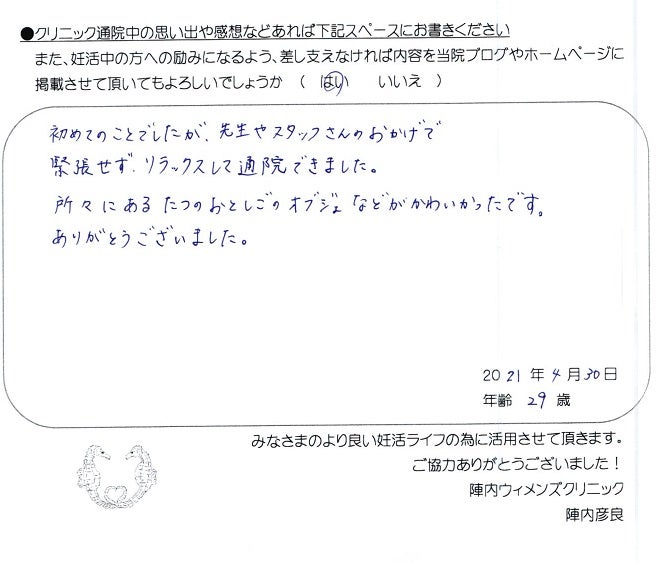 ●クリニック通院中の思い出や感想などあれば下記スペースにお書きください
また、妊活中の方への励みになるよう、差し支えなければ内容を当院ブログやホームページに
掲載させて頂いてもよろしいでしょうか （ はい　いいえ ）
初めてのことでしたが、先生やスタッフさんのおかげで
緊張せず、リラックスして通院できました。
所々にあるたつのおとしごのオブジェなどがかわいかったです。
ありがとうございました。
2021年4月30日
年齢 29歳
みなさまのより良い妊活ライフの為に活用させて頂きます。
ご協力ありがとうございました！
陣内ウィメンズクリニック
陣内彦良